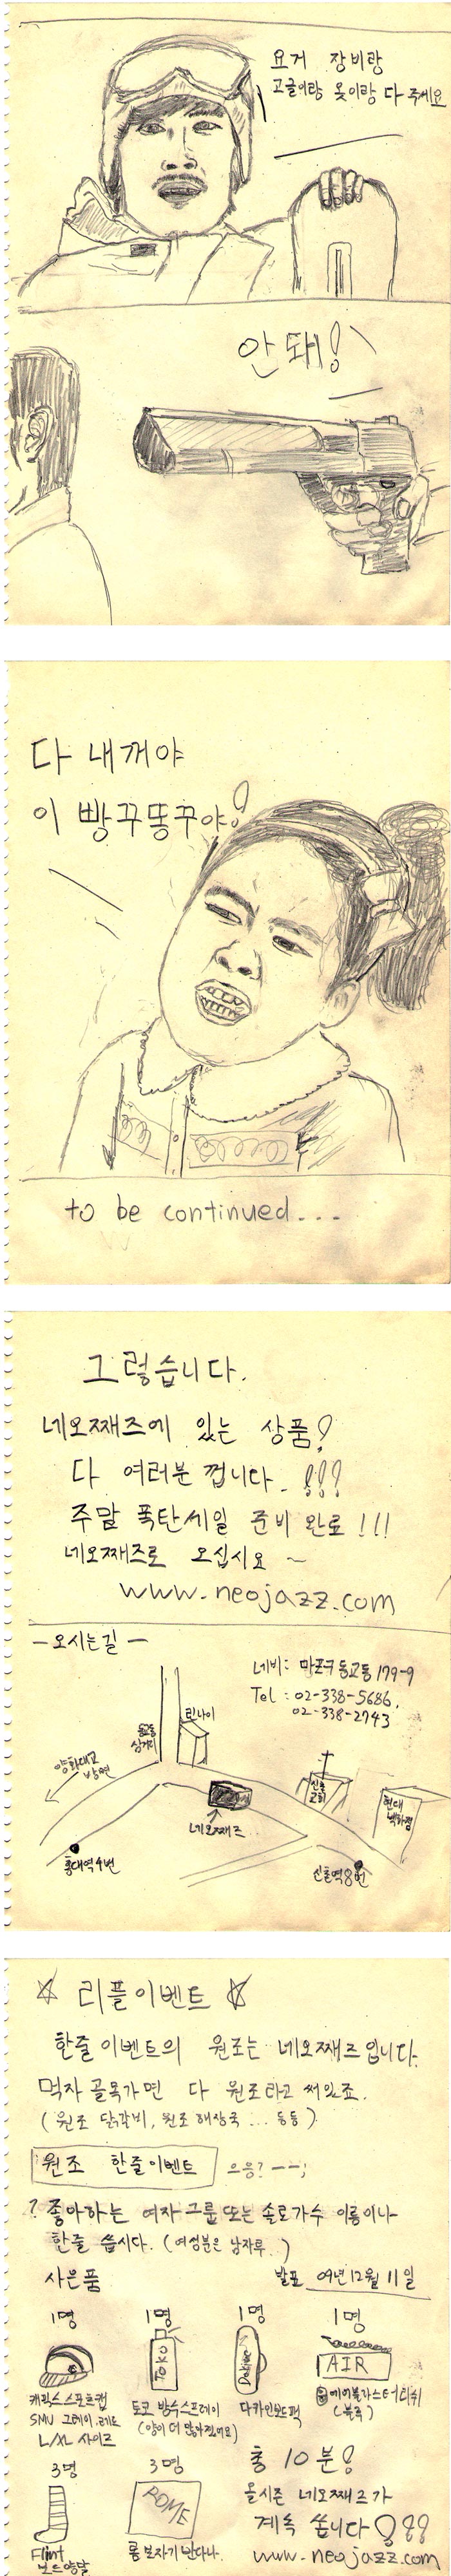 요거 장비랑
고글이랑 옷이랑 다 주세요
안돼!
다 내꺼야
이 빵꾸똥꾸야!
to be continued...
그렇습니다.
네오째즈에 있는 상품?
다 여러분 껍니다. !!!
주말 폭탄세일 준비 완료!!!
네오째즈로 오십시요 ~
www.neojazz.com
- 오시는길 -
네비: 마포구 동교동 179-9
Tel : 02-338-5686,
02-338-2743
린나이
동교동
삼거리
양화대교
방면
신촌
교회
현대
백화점
네오째즈
홍대역 4번
신촌역 8번
☆ 리플이벤트 ☆
한줄 이벤트의 원조는 네오째즈 입니다.
먹자 골목가면 다 원조라고 써있죠.
(원조 닭갈비, 원조 해장국 ... 등등)
원조 한줄이벤트 으응? --;
? 좋아하는 여자 그룹 또는 솔로가수 이름이나
한줄 씁시다. (여성분은 남자루.)
사은품 발표 09년 12월 11일
1명 1명 1명 1명
TOKO
Dakine
AIR
캐픽스 스포츠캡
SMU 그레이.레드
L/XL 사이즈
토코 방수스프레이
(양이 더 많아졌어요)
다카인 보드팩
에어블라스터 티쉬
(블루)
3명 3명
ROME
Flint
보드양말
롬 보자기 반다나.
총 10분!
올시즌 네오째즈가
계속 쏩니다 !!!
www.neojazz.com